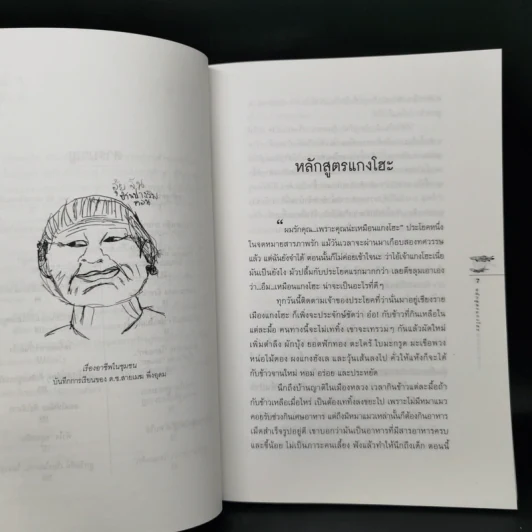 อุ้ย จัน
เรื่องอาชีพในชุมชน
บันทึกการเรียนของ ด.ช.สายเมฆ พึ่งอุดม
หลักสูตรแกงโฮะ
“ผมรักคุณ...เพราะคุณน่ะเหมือนแกงโฮะ” ประโยคหนึ่ง
ในจดหมายสารภาพรัก แม้วันเวลาจะผ่านมาเกือบสองทศวรรษ
แล้ว แต่ฉันยังจำได้ ตอนนั้นก็ไม่ค่อยเข้าใจนะ ว่าไอ้เจ้าแกงโฮะเนี่ย
มันเป็นยังไง มัวปลื้มกับประโยคแรกมากกว่า เลยตีขลุมเอาเอง
ว่า..อืม...เหมือนแกงโฮะ น่าจะเป็นอะไรที่ดีๆ
ทุกวันนี้ติดตามเจ้าของประโยคที่ว่านั้นมาอยู่เชียงราย
เมืองแกงโฮะ ก็เพิ่งจะประจักษ์ชัดว่า อ๋อ! กับข้าวที่กินเหลือใน
แต่ละมื้อ คนทางนี้จะไม่เททิ้ง เขาจะเทรวมๆ กันแล้วผัดใหม่
เพิ่มตำลึง ผักบุ้ง ยอดฟักทอง ตะไคร้ ใบมะกรูด มะเขือพวง
หน่อไม้ดอง ผงแกงฮังเล และวุ้นเส้นลงไป คั่วให้แห้งก็จะได้
กับข้าวจานใหม่ หอม อร่อย และประหยัด
นึกถึงบ้านญาติในเมืองหลวง เวลากินข้าวแต่ละมื้อถ้า
กับข้าวเหลือเมื่อไหร่ เป็นต้องเททิ้งลงขยะไป เพราะไม่มีหมาแมว
คอยรับช่วงกินเศษอาหาร แต่ถึงมีหมาแมวเหล่านั้นก็ต้องกินอาหาร
เม็ดสำเร็จรูปอยู่ดี เขาบอกว่ามันเป็นอาหารที่มีสารอาหารครบ
และขี้น้อย ไม่เป็นภาระคนเลี้ยง ฟังแล้วทำให้นึกถึงเด็ก ตอนนี้